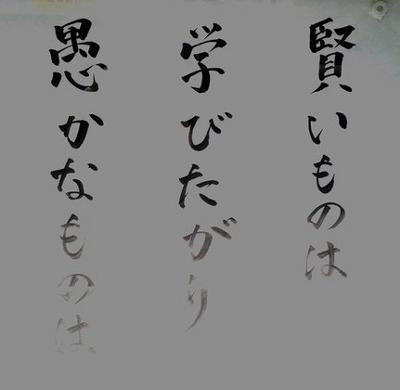 賢いものは
学びたがり
愚かなものは